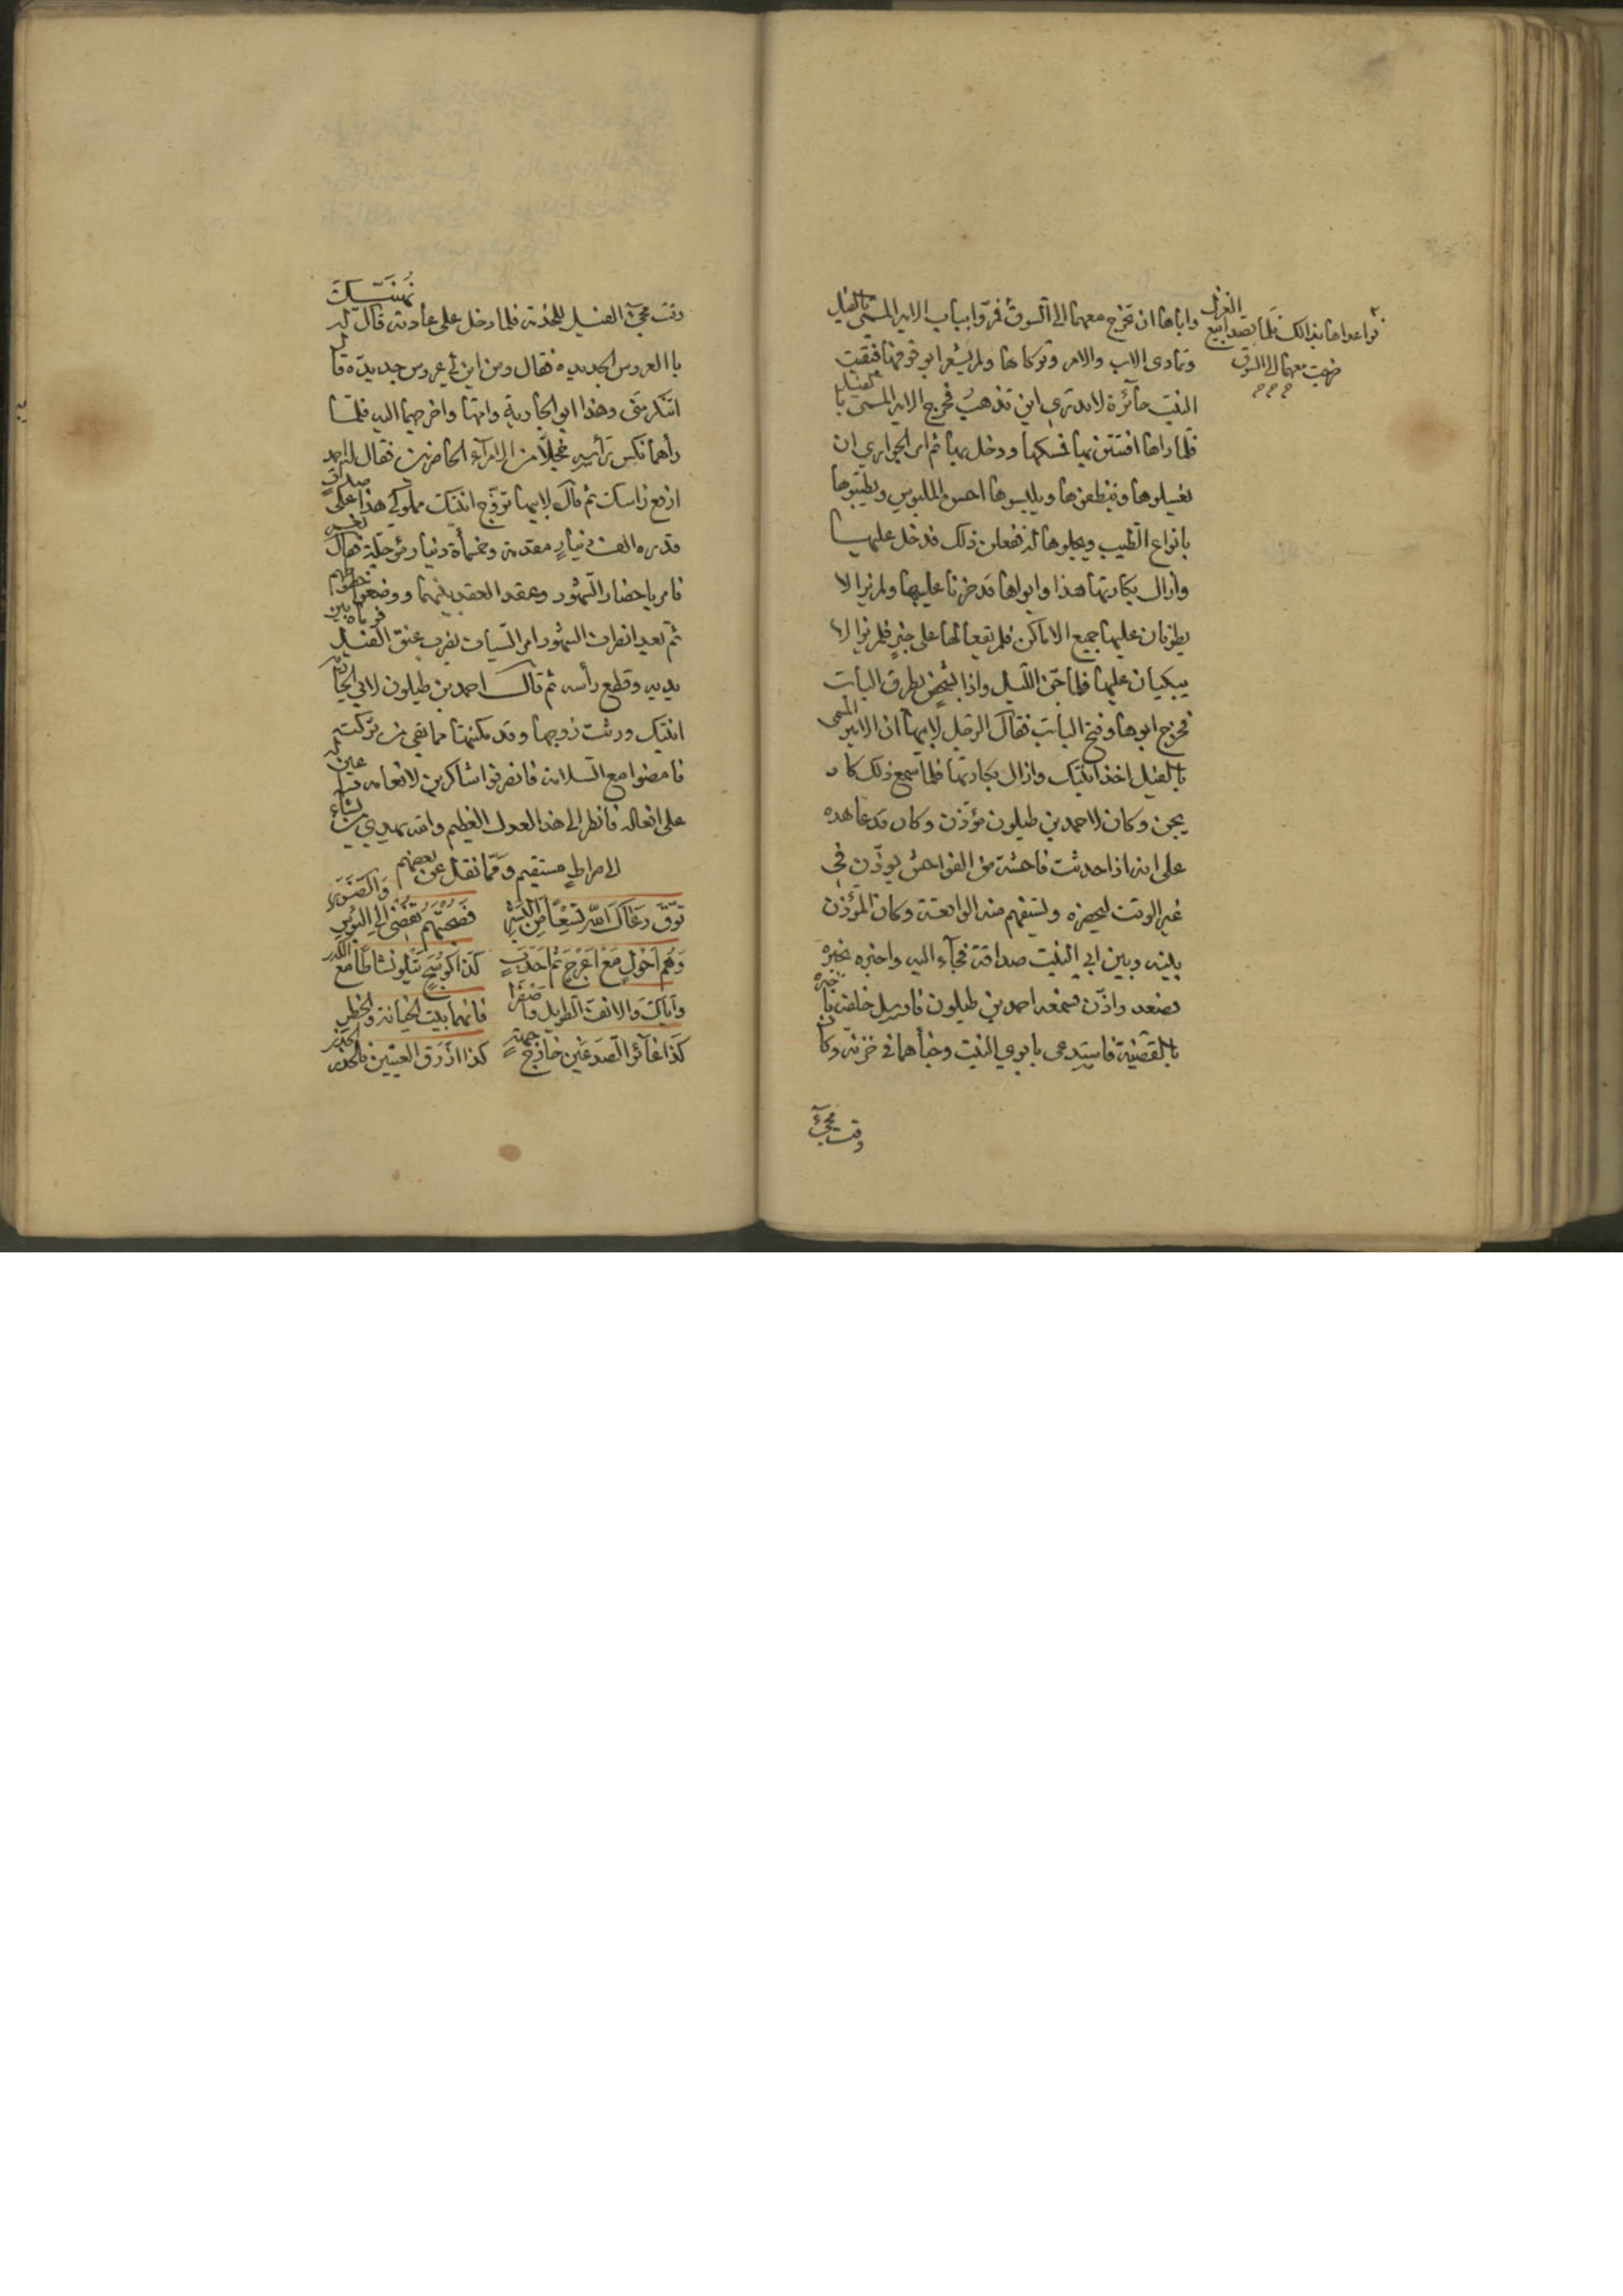 واباها ان تخرج معهما الى السوق فمروا بباب الامير المسمى بالفيل
فواعداها بذالك فلما قصدا بيع الغزل
خرجت معهما الى السوق
وتمادى الاب والام وتركاها ولم يشعرا بوقوفها فبقيت
البنت حائرة لا تدري اين تذهب فخرج الامير المسمى بالفيل
فلما راها افتتن بها فمسكها ودخل بها ثم امر الجواري ان
يغسلوها وينظفوها ويلبسوها احسن الملبوس ويطيبوها
بانواع الطيب ويجلوها له ففعلن ذلك فدخل عليها
وازال بكارتها هذا وابواها قد حزنا عليها ولم يزالا
يطوفان عليها جميع الاماكن فلم يقعا لها على خبر فلم يزالا
يبكيان عليها فلما جن الليل واذا بشخص يطرق الباب
فخرج ابوها وفتح الباب فقال الرجل لابيها ان الامير المسمى
بالفيل اخذ ابنتك وازال بكارتها فلما سمع ذلك كاد
يجن وكان لاحمد بن طيلون مؤذن وكان قد عاهده
على انه اذا حدثت فاحشة من الفواحش يوذن في
غير الوقت ليحضره ويستفهم منه الواقعة وكان المؤذن
بينه وبين ابي البنت صداقة فجاء اليه واخبره بخبره
فصعد واذن فسمعه احمد بن طيلون فارسل خلفه فاخبره
بالقضية فاستدعى بابوي البنت وخبأهما في خزنه وكان
وقت مجيء
وقت مجيء الفيل للخدمة فلما دخل على عادته قال له نهنيك
بالعروس الجديده فقال ومن اين لي عروس جديدة قال
اتنكر مني وهذا ابو الجارية وامها واخرجهما اليه فلما
رأهما نكس رأسه خجلا من الامرآء الحاضرين فقال له احمد
ارفع راسك ثم قال لابيها تزوج ابنتك مملوكي هذا على صداق
قدره الف دينار مقدمة وخمسمأة دينار مؤجلة فقال نعم
فامر باحضار الشهود وعقد العقد بينهما ووضعوا خطوطهم
ثم بعد انصراف الشهود امر السياف بضرب عنق الفيل فرماه بين
يديه وقطع رأسه ثم قال احمد بن طيلون لابي الجارية
ابنتك ورثت زوجها وقد مكنتها مما بقي من تركته
فامضوا مع السلامة فانصرفوا شاكرين لانعامه داعين له
على افعاله فانظر الى هذا العدل العظيم والله يهدي من يشاء
الى صراط مستقيم ومما نقل عن بعضهم
توق رعاك الله تسعا من البشر فصحبتهم تفضي الى البؤس والضرر
وهم احول مع اعرج ثم احدب كذا كوسج يتلو نشاطا مع الكدر
واياك والانف الطويل واصفرا فانهما بيت الخيانة والخطر
كذا غائر الصدغين خارج جبهة كذا ازرق العينين فالحذر الحذر